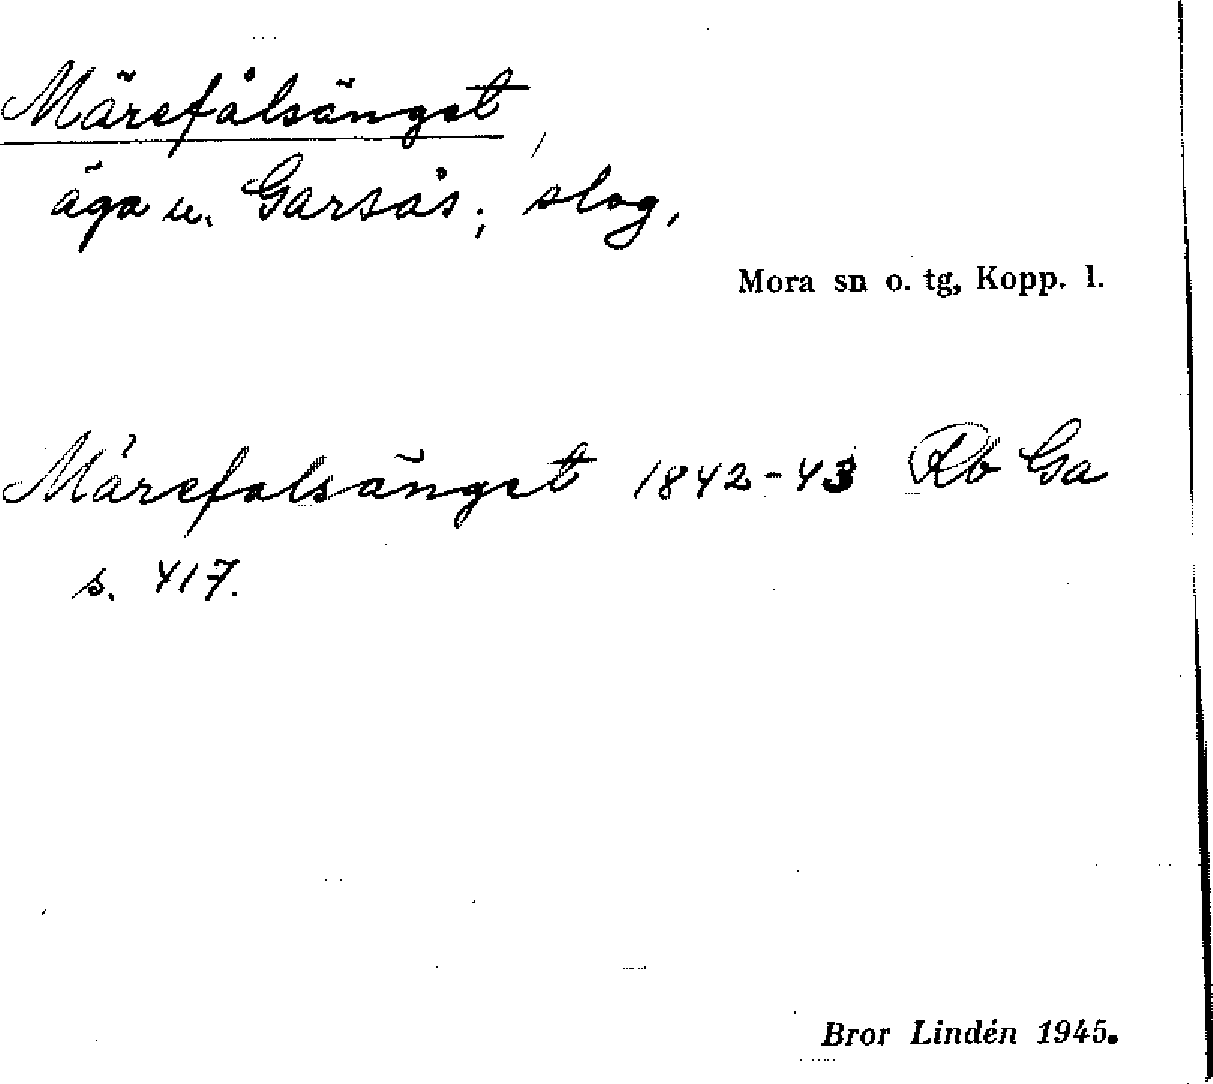 Märefålsänget,
äga u. Garsås; slog,
Mora sn o. tg, Kopp. l.
Märefolsänget 1842-43 Rb Ga
s. 417.
Bror Lindén 1945.